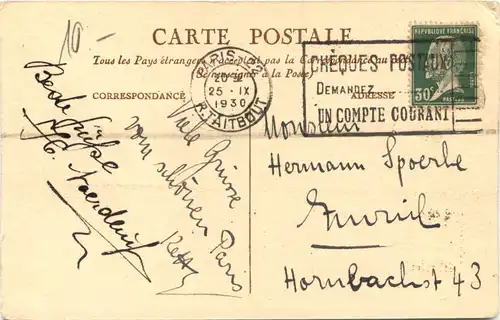 10 -
CARTE POSTALE
Tous les Pays étrangers n'acceptent pas la Correspondance au
Se renseigner à la Poste
CORRESPONDANCE
ADRESSE
PARIS
25 · IX
1930
R. TAITBOUT
CHÈQUES POSTAUX
DEMANDEZ
UN COMPTE COURANT
RÉPUBLIQUE FRANÇAISE
30c
POSTES
Viele Grüsse
vom schönen Paris
Beste Grüsse
Monsieur
Hermann Spoerle
Zurich
Hornbachst 43